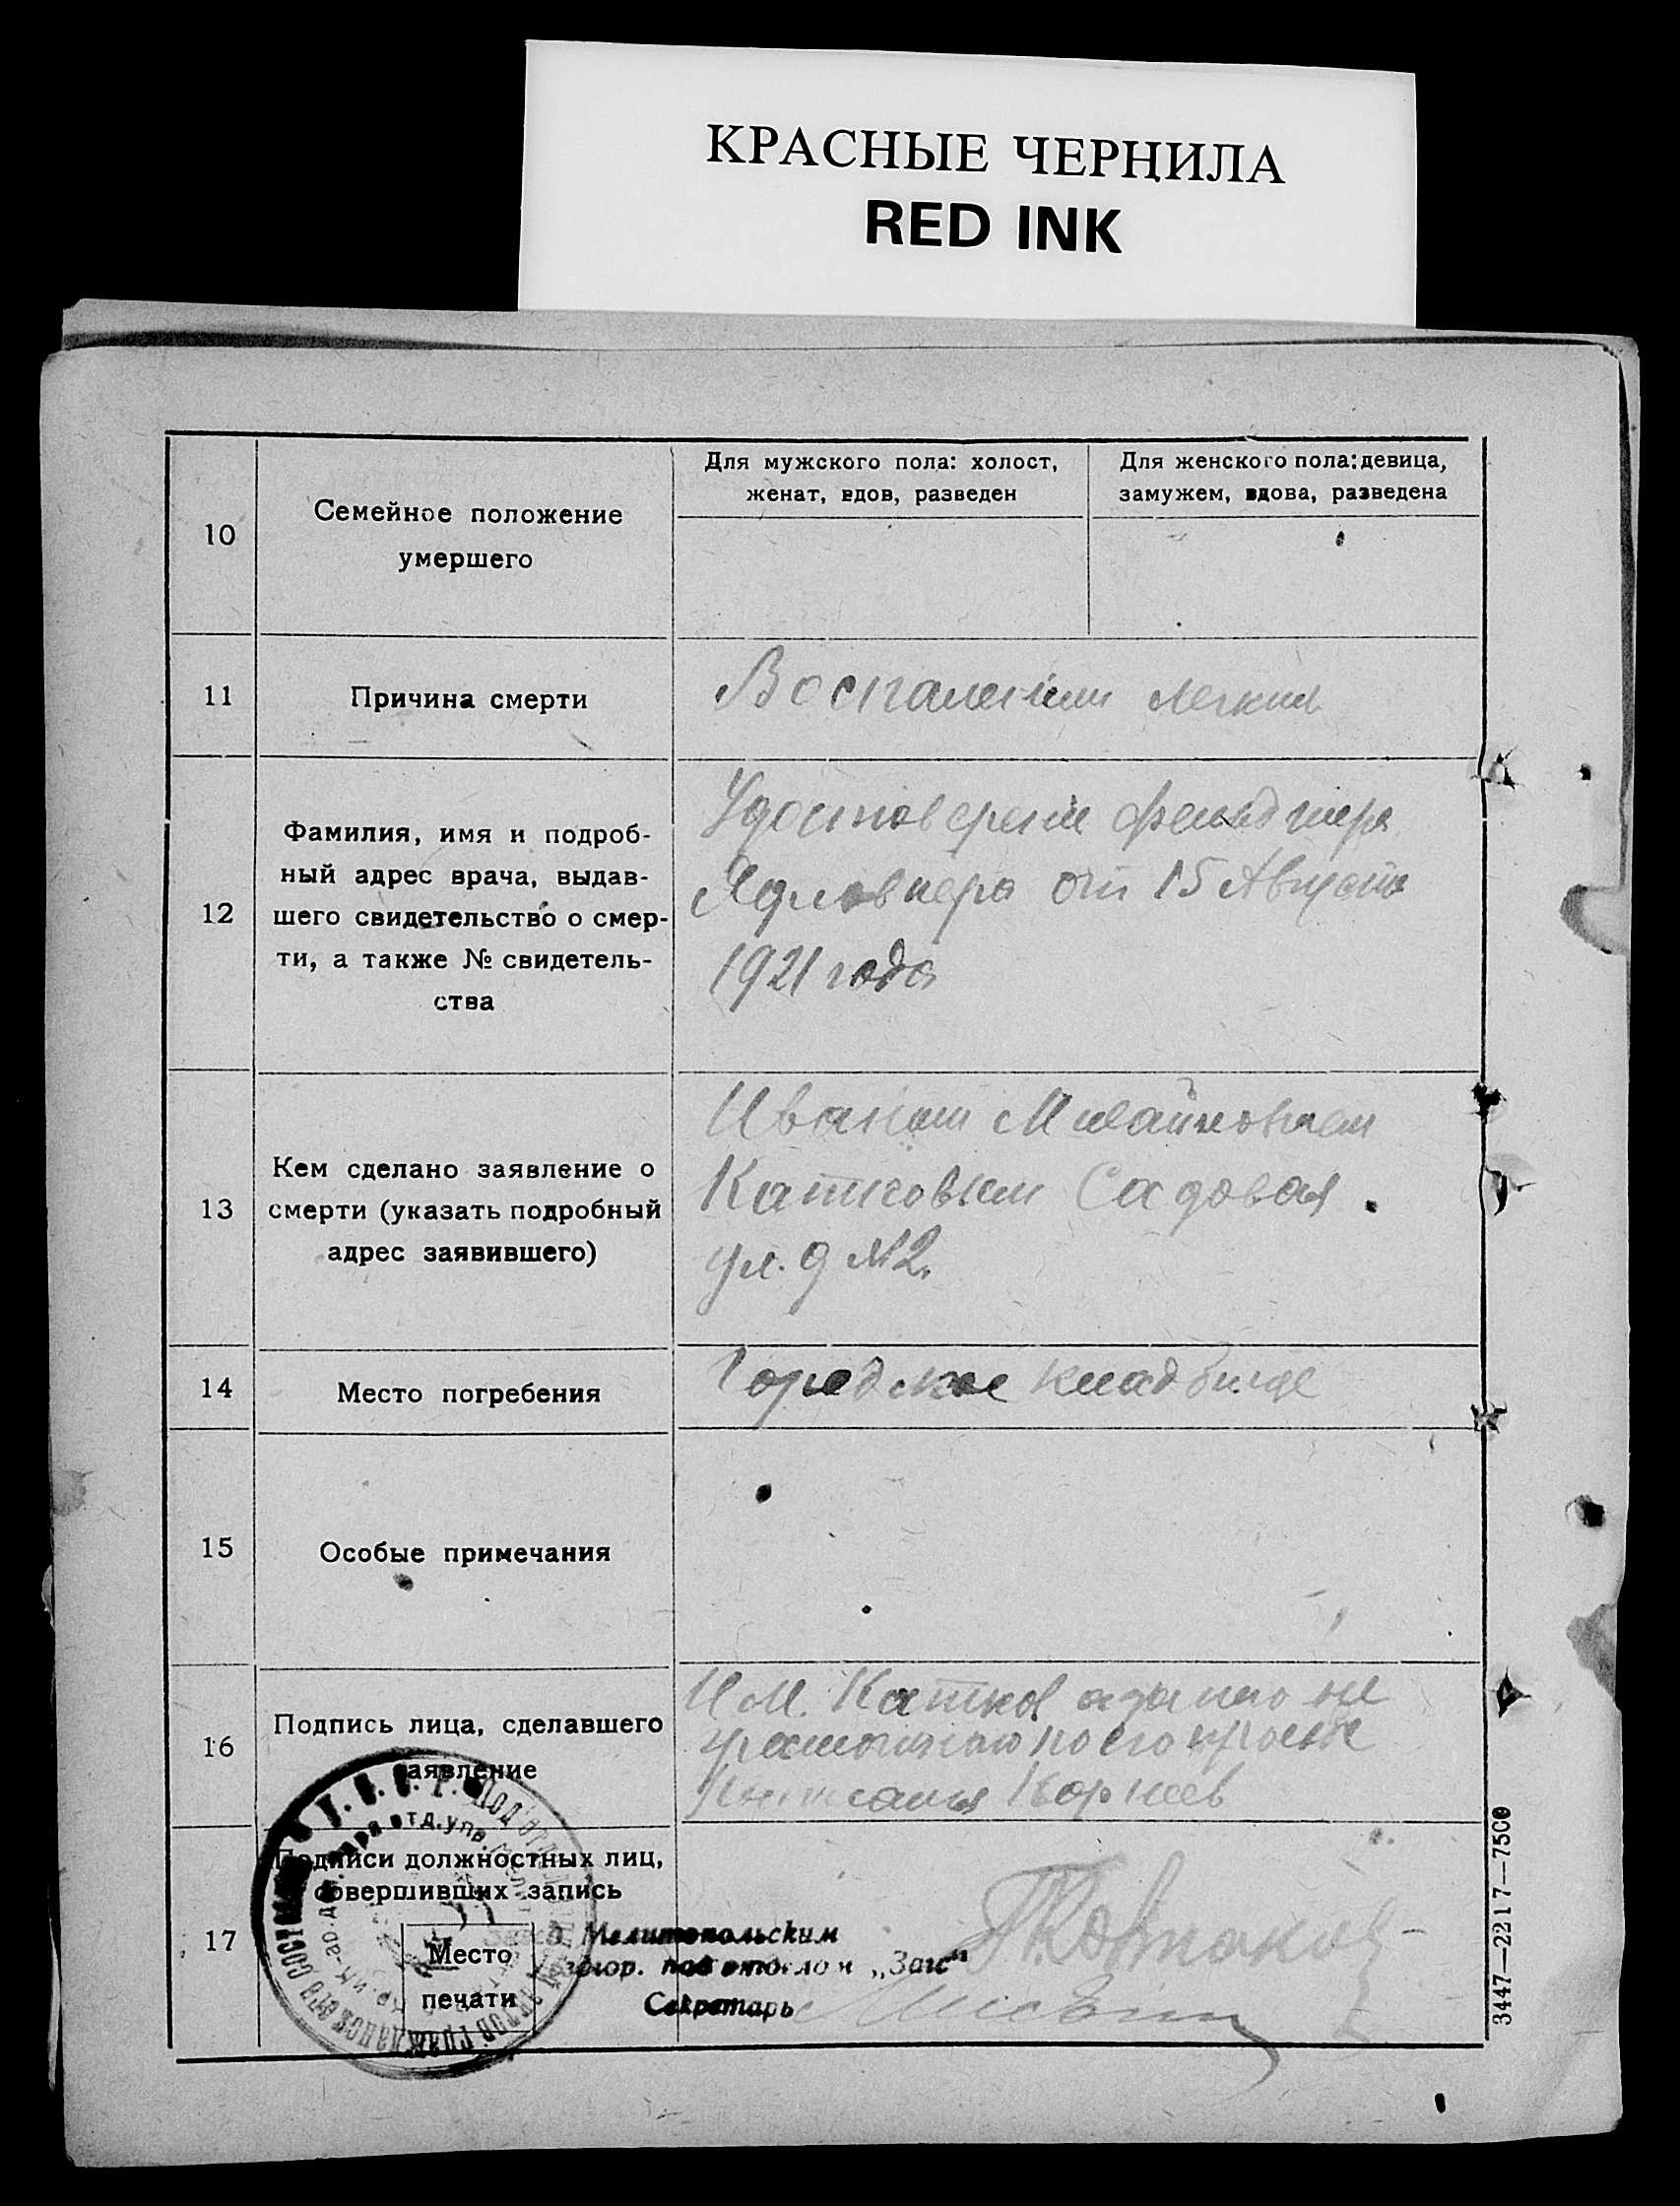 КРАСНЫЕ ЧЕРНИЛА
RED INK
10
Семейное положение
умершего
Для мужского пола: холост,
женат, вдов, разведен
Для женского пола: девица,
замужем, вдова, разведена
11
Причина смерти
Воспаление легких
12
Фамилия, имя и подроб-
ный адрес врача, выдав-
шего свидетельство о смер-
ти, а также № свидетель-
ства
Удостоверение фельдшера
от 15 Августа
1921 года
13
Кем сделано заявление о
смерти (указать подробный
адрес заявившего)
Иваном Михайловичем
Катковым Садовая
ул. д № 2.
14
Место погребения
Городское кладбище
15
Особые примечания
16
Подпись лица, сделавшего
заявление
И М. Катков а за его не
грамотного по его просьбе
Корнеев
17
Подписи должностных лиц,
совершивших запись
Место
печати
Мелитопольским
подотделом „Загс"
Секретарь
3447—2217—7500